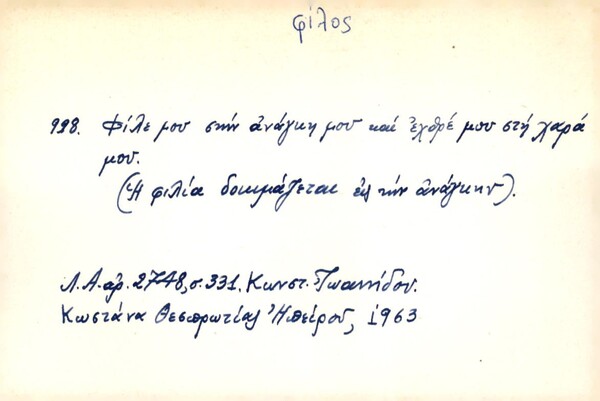 φίλος
928. Φίλε μου στην ἀνάγκη μου καί ἐχθρέ μου στή χαρά
μου.
(Ἡ φιλία δοκιμάζεται εἰς τήν ἀνάγκην).
Λ.Α. ἀρ. 2748, σ. 331. Κωνστ. Ἰωαννίδου.
Κωστάνα Θεσπρωτίας Ἠπείρου, 1963